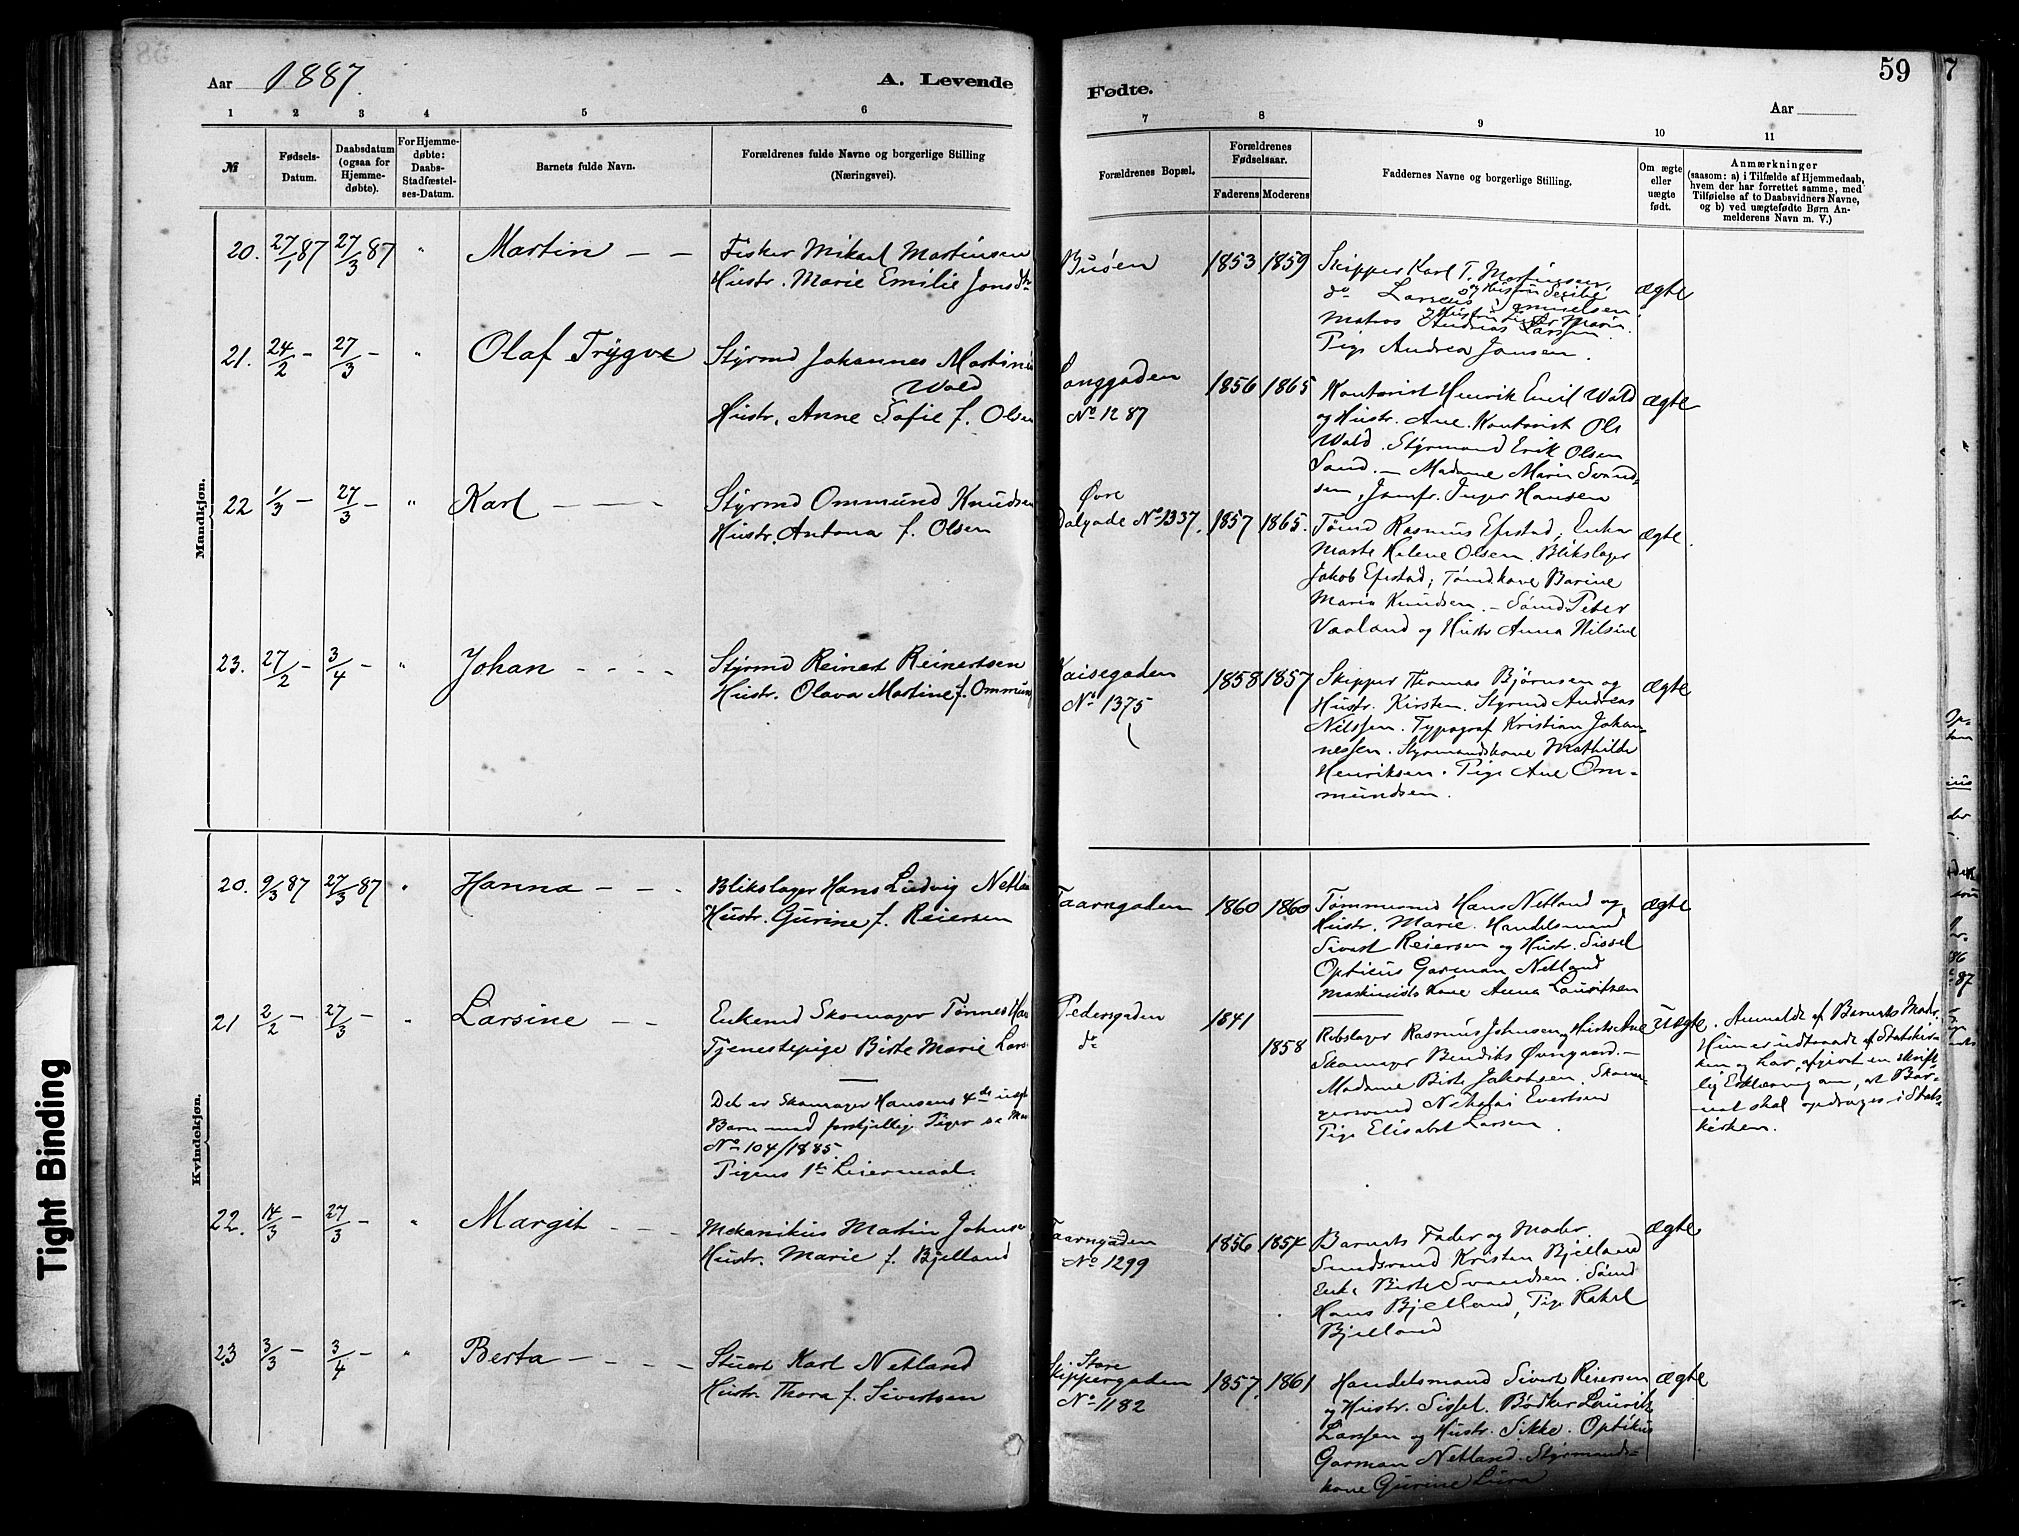 Aar 1887. A. Levende
1 2 3 4 5 6
№ Fødsels-Datum. Daabsdatum (ogsaa for Hjemme-døbte). For Hjemme-døbte: Daabs-Stadfæstel-ses-Datum. Barnets fulde Navn. Forældrenes fulde Navne og borgerlige Stilling (Næringsvei).
Mandkjøn.
20. 27/1 87 27/3 87 " Martin – – Fisker Mikael Martinsen
Hustr. Marie Emilie Jonsdtr
21. 24/2 – 27/3 – " Olaf Trygve Styrmd Johannes Martin
Wold
Hustr. Anne Sofie f. Olsen
22 1/3 – 27/3 – " Karl – – – Styrmd Ommund Knudsen
Hustr. Antona f. Olsen
23. 27/2 – 3/4 – " Johan – – – Styrmd Reinert Reinertsen
Hustr. Olava Martine f. Ommun
Kvindekjøn.
20. 9/3 87 27/3 87 " Hanna – – – Blikslager Hans Ludvig Netlan
Hustr. Gurine f. Reiersen
21 2/2 – 27/3 – " Larsine – – Enkemd Skomager Tønnes Han
Tjenestepige Birte Marie Lars
Det er Skomager Hansens 4de uægt
Barn med forskjellige Piger se
No 104/1885.
Pigens 1te Leiermaal.
22. 14/3 – 27/3 – " Margit – – Mekanikus Martin Johns
Hustr. Marie f. Bjelland
23 3/3 – 3/4 – " Berta – – – Stuert Karl Netland
Hustr. Thora f. Sivertsen
59
Fødte. Aar
7 8 9 10 11
Forældrenes Bopæl. Forældrenes Fødselsaar. Faderens Moderens Faddernes Navne og borgerlige Stilling. Om ægte eller uægte født. Anmærkninger
(saasom: a) i Tilfælde af Hjemmedaab,
hvem der har forrettet samme, med
Tilføielse af to Daabsvidners Navne,
og b) ved uægtefødte Børn An-
melderens Navn m. V.)
Busøen 1853 1859 Skipper Karl T. Martinsen, ægte
og Hustru Secilie
do Larseus Samuelsen
og Hustru Marie.
Matros Andreas Larsen.
Pige Andrea Jansen.
Langgaden 1856 1865 Kontorist Henrik Emil Wold ægte
No 1287 og Hustr. Ane. Kontorist Ole
Wold. Styrmand Erik Olsen
Sand. – Madame Marie Svend-
sen, Jomfr. Inger Hansen
Øvre
Dalgade No 1337. 1857 1865. Tømd Rasmus Efrstad, Enke ægte.
Marte Helene Olsen. Blikslager
Jakob Efrstad; Tømdkone Barine
Maria Knudsen. – Sømd Peter
Vaaland og Hustr Anna Nilsine
Kaisegaden 1858 1857 Skipper Thomas Bjørnsen og ægte
No 1375 Hustr. Kirsten. Styrmd Andreas
Nilssen. Typograf Kristian Johan-
nessen. Styrmandskone Mathilde
Henriksen. Pige Ane Om-
mundsen.
Taarngaden 1860 1860 Tømmermd Hans Netland og ægte
Hustr. Marie. Handelsmand
Sivert Reiersen og Hustr. Sissel
Opticus Garman Netland
Maskinists Kone Anna Lauritsen
Pedersgaden 1841 Rebslager Rasmus Johnsen og Hustr. Ane Uægte. Anmeldt af Barnets Moder.
do 1858 Skomager Bendiks Øvregaard. – Hun er udtraadt af Statskir-
Madame Birte Jakobsen. Skoma- ken og har afgivet en skrift-
gersvend Nikolai Evertsen lig Erklæring om, at Bar-
Pige Elisabet Larsen. net skal opdrages i Stats-
kirken.
Taarngaden 1856 1854 Barnets Fader og Moder. ægte
No 1299 Smedsvend Kristen Bjelland
Enke Birte Svendsen. Sømd
Hans Bjelland, Pige Rakel
Bjelland
Store
Skippergaden 1857. 1861 Handelsmand Sivert Reiersen ægte
No 1182 og Hustr. Sissel. Bødker Laurits
Larssen og Hustr. Sikke. Optikus
Garman Netland. Styrmands-
kone Gurine Lura
7
87
Tight Binding